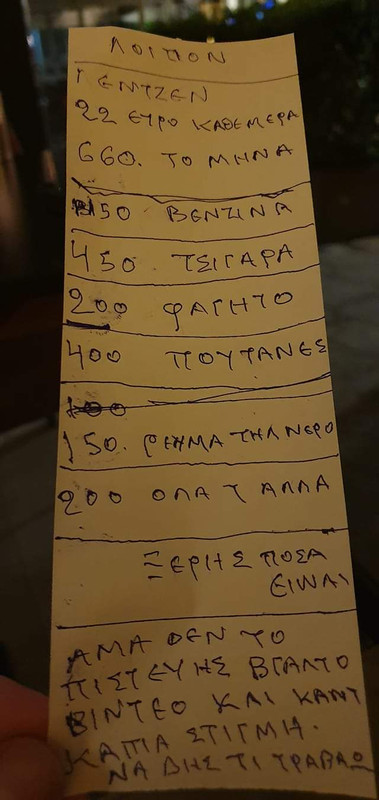 ΛΟΙΠΟΝ
ΓΕΝΤΖΕΝ
22 ΕΥΡΟ ΚΑΘΕΜΕΡΑ
660. ΤΟ ΜΗΝΑ
150 ΒΕΝΖΙΝΑ
450 ΤΣΙΓΑΡΑ
200 ΦΑΓΗΤΟ
400 ΠΟΥΤΑΝΕΣ
100
150. ΡΕΗΜΑ ΤΗΛ ΝΕΡΟ
200 ΟΛΑ Τ ΑΛΛΑ
ΞΕΡΗΣ ΠΟΣΑ
ΕΙΝΑΙ
ΑΜΑ ΔΕΝ ΤΟ
ΠΙΣΤΕΥΗΣ ΒΓΑΛΤΟ
ΒΙΝΤΕΟ ΚΑΙ ΚΑΝΤ
ΚΑΠΙΑ ΣΤΙΓΜΗ.
ΝΑ ΔΗΣ ΤΙ ΤΡΑΒΑΩ